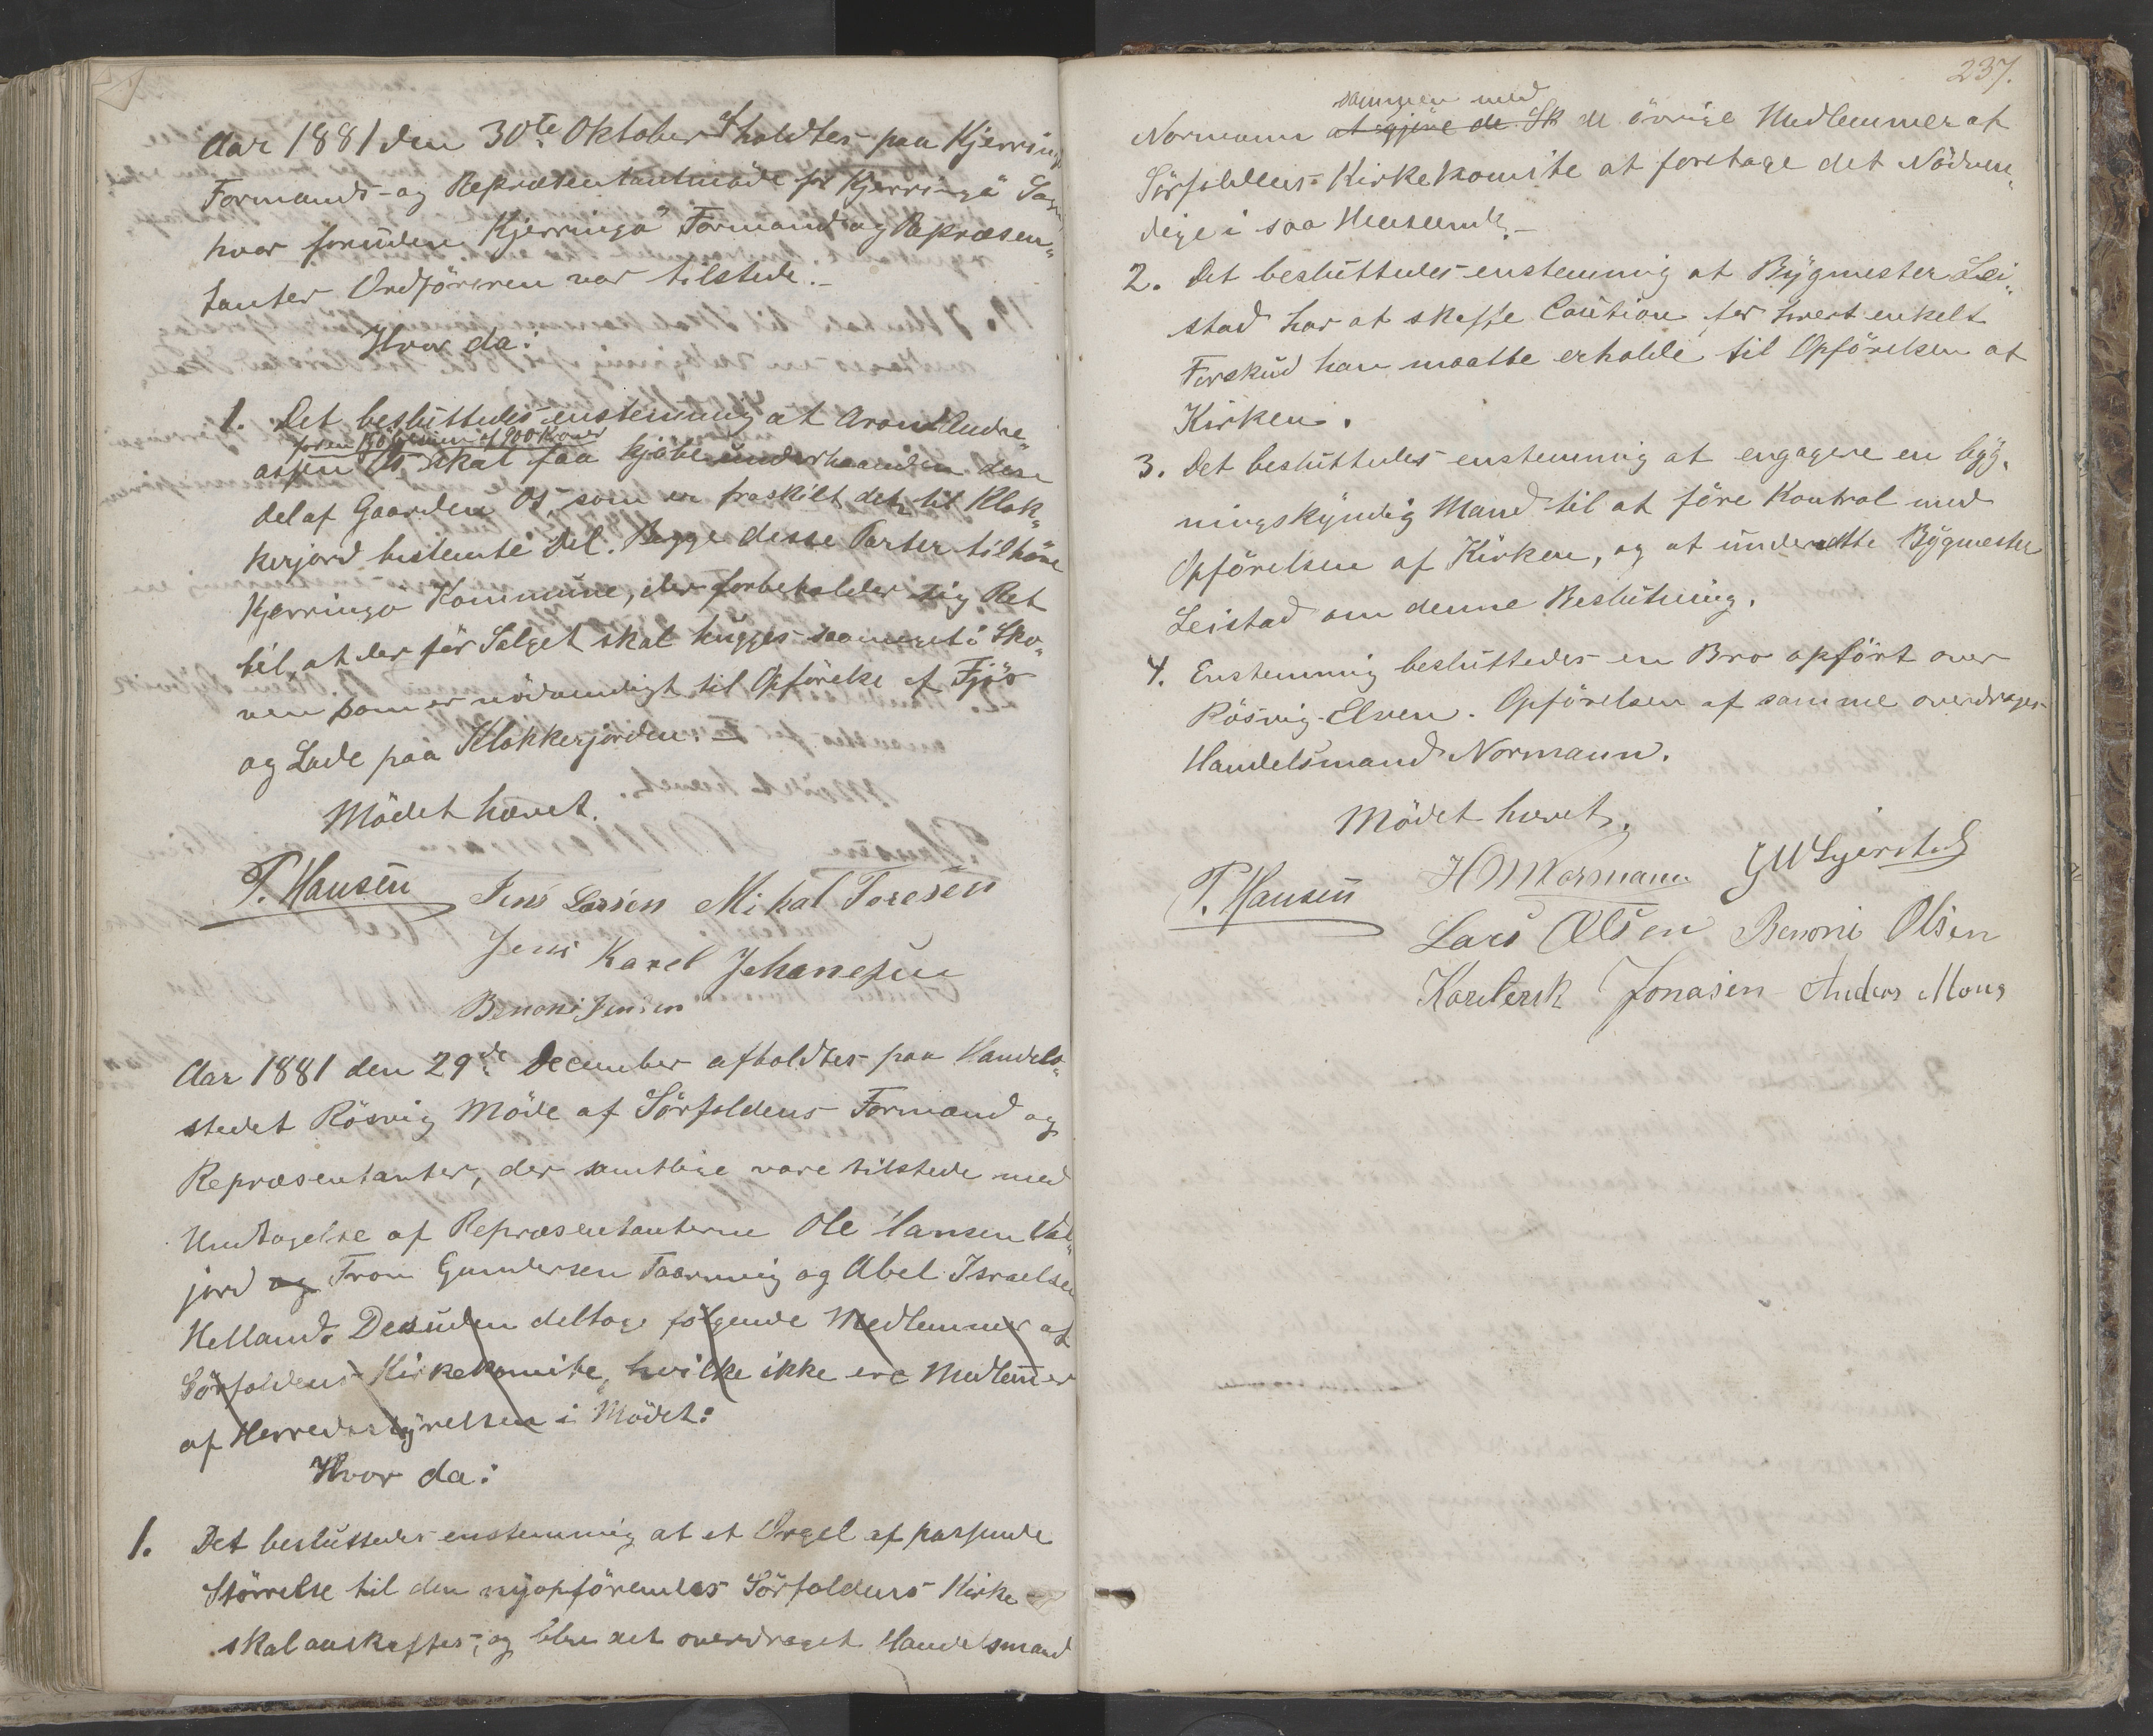 Aar 1881 den 30te Oktober afholdtes paa Kjerringö
Formands- og Repræsentantmöde for Kjerringö Sogn,
hvor foruden Kjerringö Formænd og Repræsen-
tanter Ordföreren var tilstede.-
Hvor da:
1. Det besluttedes enstemmig at Aron Andre-
for en Kjöbesum af 900 Kroner
assen Os skal faa kjöbe underhaanden den
Del af Gaarden Os, som er fraskilt det til Klok-
kerjord bestemte Del. Begge disse Parter tilhöre
Kjerringö Kommune, der forbeholder sig Ret
til, at der för Salget skal hugges saameget i Sko-
ven som er nödvendigt til Opförelse af Fjös
og Lade paa Klokkerjorden. -
Mödet hævet.
P. Hansen Jens Larsen Mikal Toresen
Jens Karel Johanesen
Benoni Jensen
Aar 1881 den 29de December afholdtes paa Handels-
stedet Rösvig Möde af Sörfoldens Formænd og
Repræsentanter, der samtlige vare tilstede med
Undtagelse af Repræsentanterne Ole Hansen Val-
jord og Tron Gundersen Taarnvig og Abel Israelsen
Helland. Desuden deltoge følgende Medlemmer af
Sörfoldens Kirkekomite, hvilke ikke ere Medlemmer
af Herredsstyrelsen i Mödet:
Hvor da:
1. Det besluttedes enstemmig at et Orgel af passende
Störrelse til den nyopförendes Sörfoldens Kirke
skal anskaffes, og blev det overdraget Handelsmand
237.
sammen med
Normann at gjöre de Sk de övrige Medlemmer af
Sörfoldens Kirkekomite at foretage det Nödven-
dige i saa Henseende.-
2. Det besluttedes enstemmig at Bygmester Lei-
stad har at skaffe Caution for hvert enkelt
Forskud han maatte erholde til Opförelsen af
Kirken.
3. Det besluttedes enstemmig at engagere en byg-
ningskyndig Mand til at före Kontrol med
Opförelsen af Kirken, og at underrette Bygmester
Leistad om denne Beslutning.
4. Enstemmig besluttedes en Bro opfört over
Rösvig-Elven. Opförelsen af samme overdrages
Handelsmand Normann.
Mödet hævet.
P. Hansen H M Normann
Lars Olsen Benoni Olsen
Jonasen Anders Mons